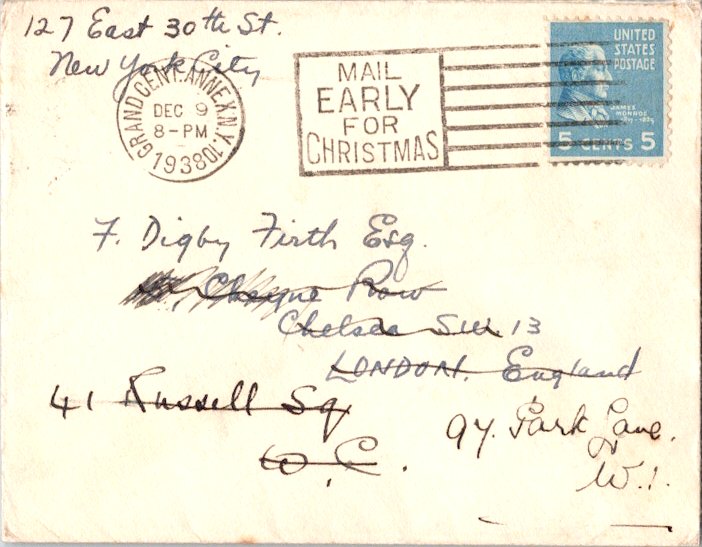 127 East 30th St.
New York City
GRAND CENT. ANNEX. N.Y. 10.
DEC 9
8-PM
1938
MAIL
EARLY
FOR
CHRISTMAS
UNITED
STATES
POSTAGE
JAMES
MONROE
5 CENTS 5
F. Digby Firth Esq.
Cheyne Row
Chelsea SW 13
LONDON, England
41 Russell Sq.
W.C.
97. Park Lane.
W.1.